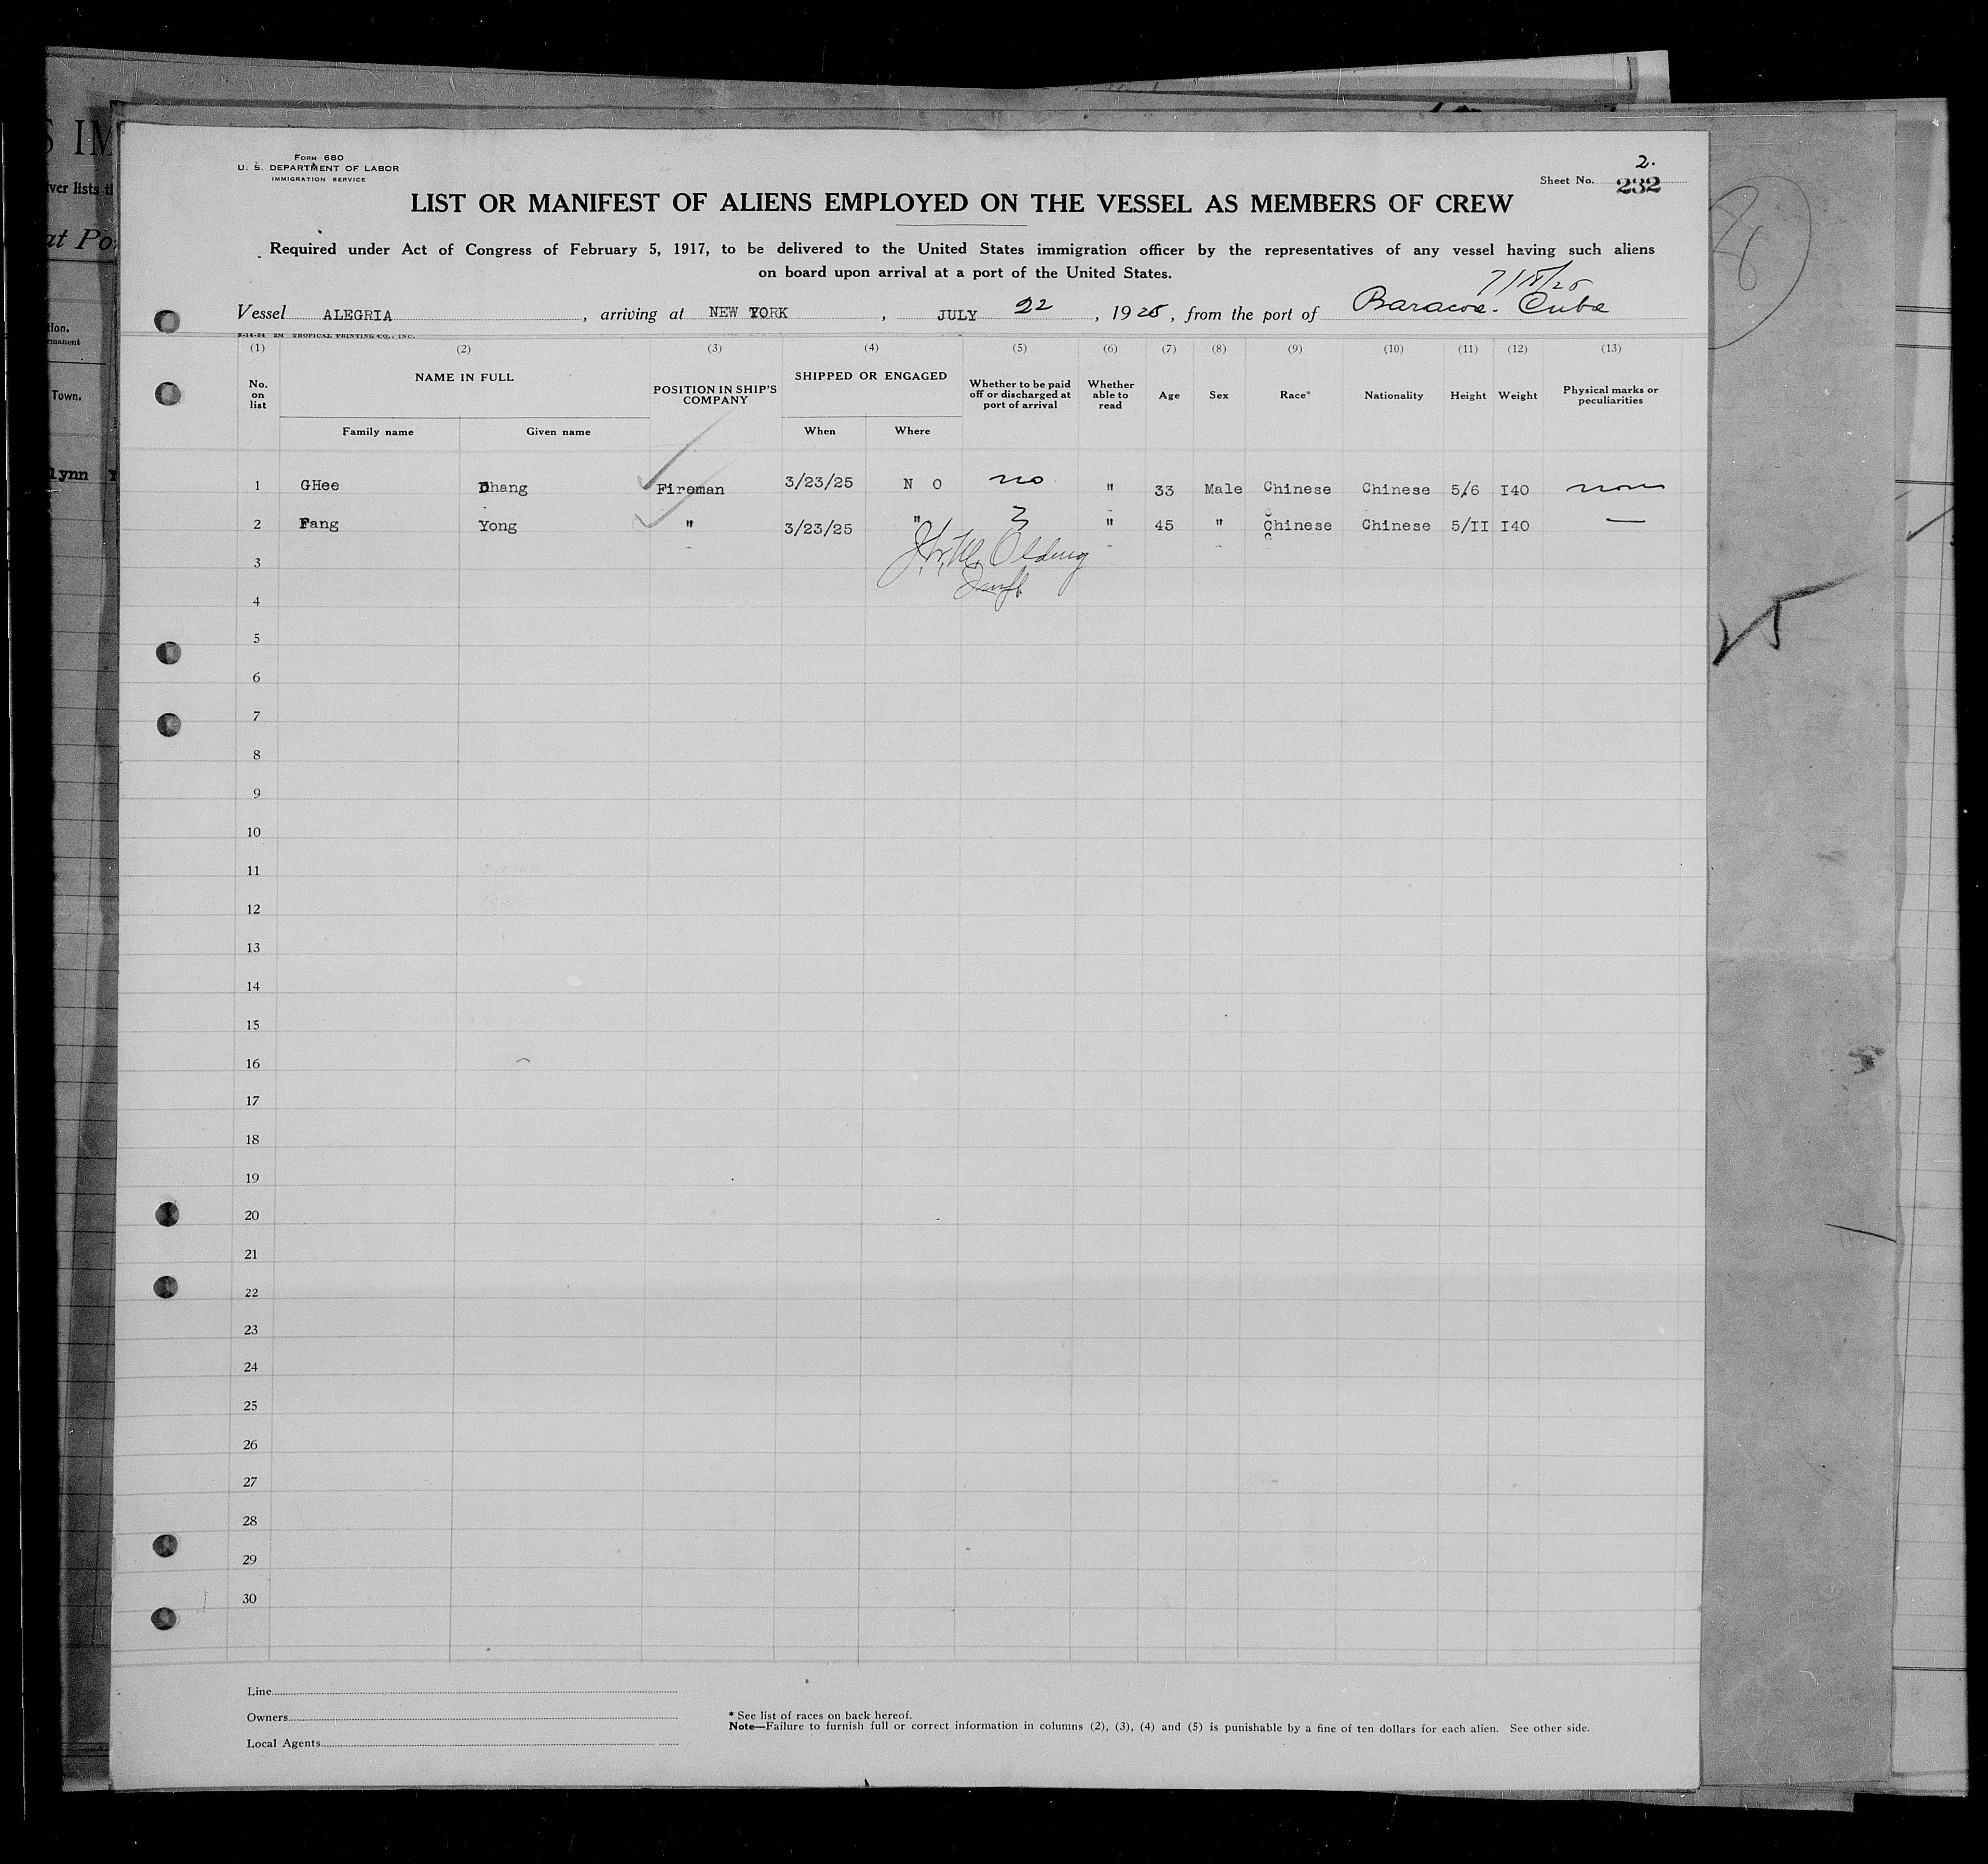 Form 680
U. S. DEPARTMENT OF LABOR
IMMIGRATION SERVICE
2.
Sheet No. 232
LIST OR MANIFEST OF ALIENS EMPLOYED ON THE VESSEL AS MEMBERS OF CREW
Required under Act of Congress of February 5, 1917, to be delivered to the United States immigration officer by the representatives of any vessel having such aliens
on board upon arrival at a port of the United States.
7/18/25
Vessel ALEGRIA, arriving at NEW YORK, JULY 22, 1925, from the port of Baracoa. Cuba
5-14-24 2M TROPICAL PRINTING CO., INC.
(1) (2) (3) (4) (5) (6) (7) (8) (9) (10) (11) (12) (13)
No. on list NAME IN FULL POSITION IN SHIP'S COMPANY SHIPPED OR ENGAGED Whether to be paid off or discharged at port of arrival Whether able to read Age Sex Race* Nationality Height Weight Physical marks or peculiarities
Family name Given name When Where
1 GHee Dhang Fireman 3/23/25 N O no " 33 Male Chinese Chinese 5/6 I40 none
2 Fang Yong " 3/23/25 " " 45 " Chinese Chinese 5/II I40 —
3
4
5
6
7
8
9
10
11
12
13
14
15
16
17
18
19
20
21
22
23
24
25
26
27
28
29
30
Line
Owners
Local Agents
* See list of races on back hereof.
Note—Failure to furnish full or correct information in columns (2), (3), (4) and (5) is punishable by a fine of ten dollars for each alien. See other side.
S IM
at Po
Town.
lynn
25